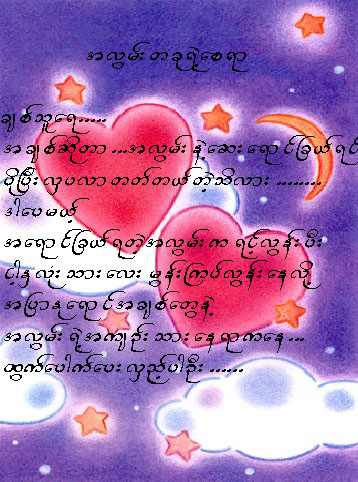 အလွမ်းတခုရဲ့စေရာ
ချစ်သူရေ.....
အချစ်ဆိုတာ ...အလွမ်း နဲ့ ဆေး ရောင်ခြယ် ရင်
ပိုပြီး လှပလာ တတ်တယ် တဲ့ သိလား ........
ဒါပေမယ့်
အရောင်ခြယ် ရတဲ့အလွမ်း က ရင့်လွန်း ပီး
ငါ့နှလုံး သား လေး မွန်းကြပ်လွန်း နေလို့
အပြာနုရောင်အချစ်တွေနဲ့
အလွမ်း ရဲ့အကျဉ်း သား နေ ရာကနေ ...
ထွက်ပေါက်ပေး လှည့်ပါဦး ......